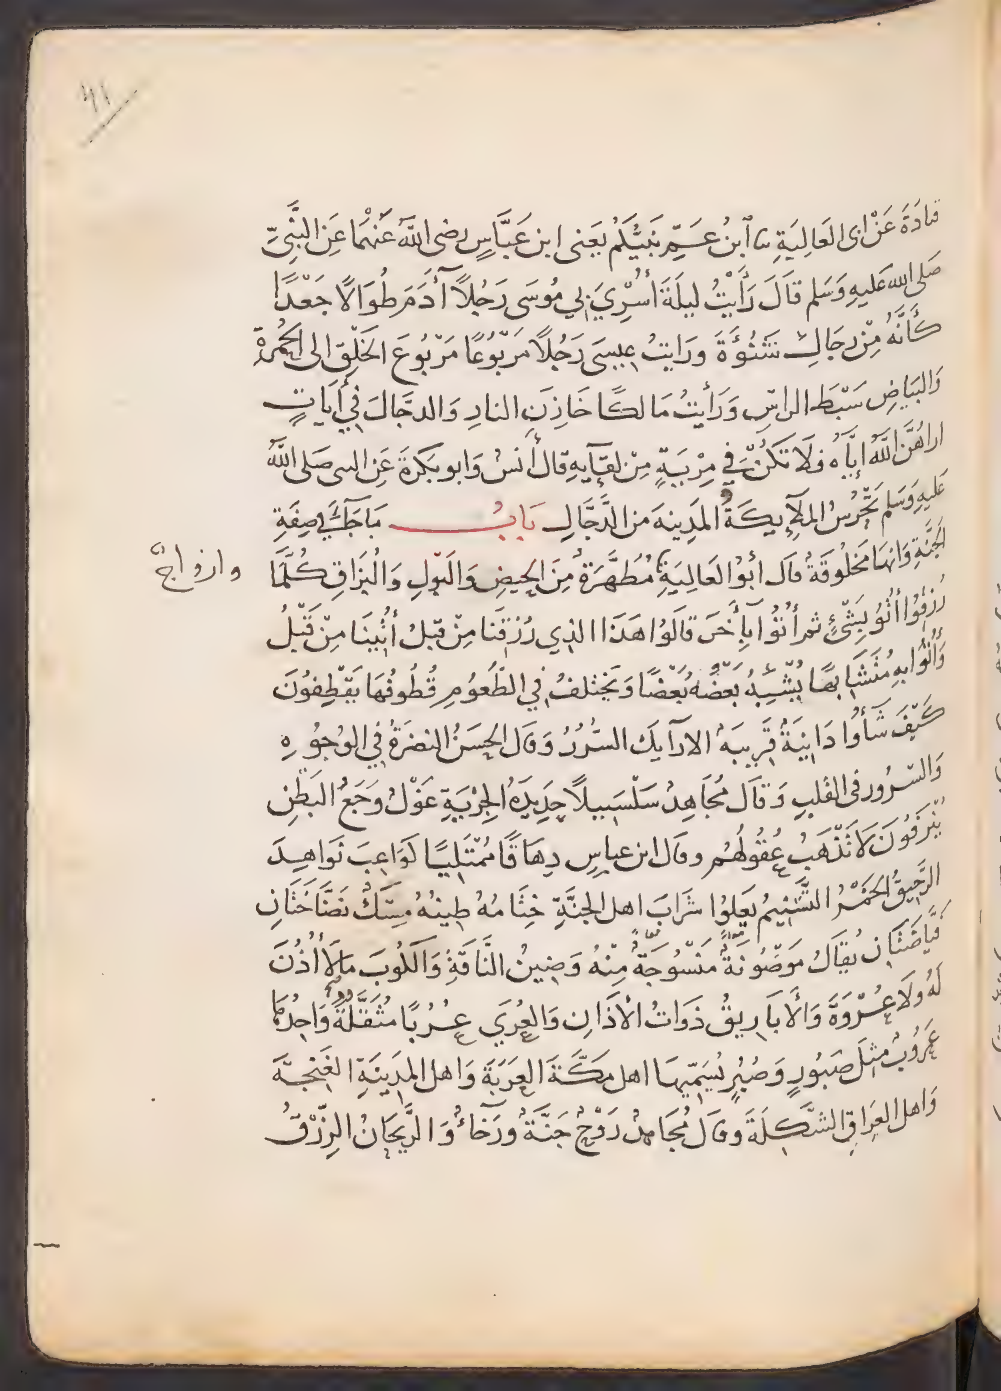 ٤١
قتادة عَنْ ابى العَالِيَةِ نا ابنُ عَمِّ نَبِيِّكُمْ يَعنى ابن عَبَّاسٍ رضى اللهُ عَنْهُمَا عَنِ النَّبِىِّ
صَلى الله عَليهِ وَسَلم قَالَ رَأَيْتُ ليلَةَ أُسْرِيَ بي مُوسَى رَجُلاً آدَمَ طُوَالًا جَعْدًا
كَأَنَّهُ مِنْ رجَالِ شَنُوءَةَ ورَايتُ عِيسَى رَجُلاً مَربُوعًا مَرْبُوعَ الخَلْقِ الى الحُمْرَةِ
وَالبَيَاضِ سَبْطَ الراسِ وَرَأَيتُ مَالكًا خَازِنَ النارِ وَالدجَّالَ فِي أيَاتٍ
اراهُنَّ اللهُ إيَّاهُ فلَا تَكُنْ فِي مِرْيَةٍ مِنْ لقَآيِهِ قال أنسٌ وَابو بَكرَةَ عَنِ النبى صَلى اللهُ
عَليهِ وَسَلم تَحْرُسُ الملآيِكَةُ المَدِينَةَ من الدَّجَّالِ بَابُ مَا جَآءَ فِي صِفَةِ
الجَنَّةِ وَانهَا مَخلُوقَةٌ قال أبُو العَالِيَةِ مُطَهَّرَةٌ مِنَ الحيضِ وَالبَولِ وَالبُزَاقِ كُلَّمَا
وازواجٌ
رُزِقُوا أُتُو بِشَيْءٍ ثم أُتُوْا بِآخَرَ قالَوُا هَذَا الذِي رُزِقنَا مِنْ قبلُ أُتِينَا مِنْ قَبْلُ
وَأُتُوا بهِ مُتَشَابهًا يُشْبِهُ بَعْضُهُ بَعْضًا وَيَختلفُ فِي الطُّعُومِ قُطُوفُهَا يَقْطِفُونَ
كَيْفَ شَآءُوا دَانِيَةٌ قَرِيبَةٌ الارَآيِك السُّرُرُ وَقال الحسَنُ النضرَةُ فِي الوُجُوهِ
وَالسّرُور فى القلبِ وَقَالَ مُجَاهِدٌ سَلْسَبِيلاً حَدِيدَةُ الجِرْيَةِ غَوْلٌ وَجَعُ البَطْنِ
يُنْزَفُونَ لَا تَذْهَبُ عُقُولُهُم وقال ابن عباسٍ دِهَاقًا مُمْتَلِيًا كَوَاعِبَ نَوَاهِدَ
الرَّحِيقُ الخَمْرُ التَّسْنِيمُ يَعلوُا شَرَابَ اهل الجنَّةِ خِتَامُهُ طِينُهُ مِسْكٌ نَضَّاخَتَانِ
فَيَّاضَتَانِ يُقَالُ مَوْضُونَةٌ مَنْسُوجَةٌ مِنْهُ وَضِينُ النَّاقَةِ وَالكُوبَ مَا لَا أُذُنَ
لَهُ ولَا عُرْوَةَ وَالأَبَارِيقُ ذَوَاتُ الأذَانِ وَالعُرَي عُرُبًا مُثَقَّلَةٌ وَاحِدُهَا
عَرُوبٌ مِثلَ صَبُورٍ وَصُبُرٍ يُسَمِّيهَا اهل مَكَّةَ العَرِبَةَ وَاهل المدِينَةِ الغَنِجَةَ
وَاهل العِرَاقِ الشّكِلَةَ وقال مُجَاهِدٌ رَوْحٌ جَنَّةٌ ورَخَاءٌ وَالرَّيْحَانُ الرِّزْقُ